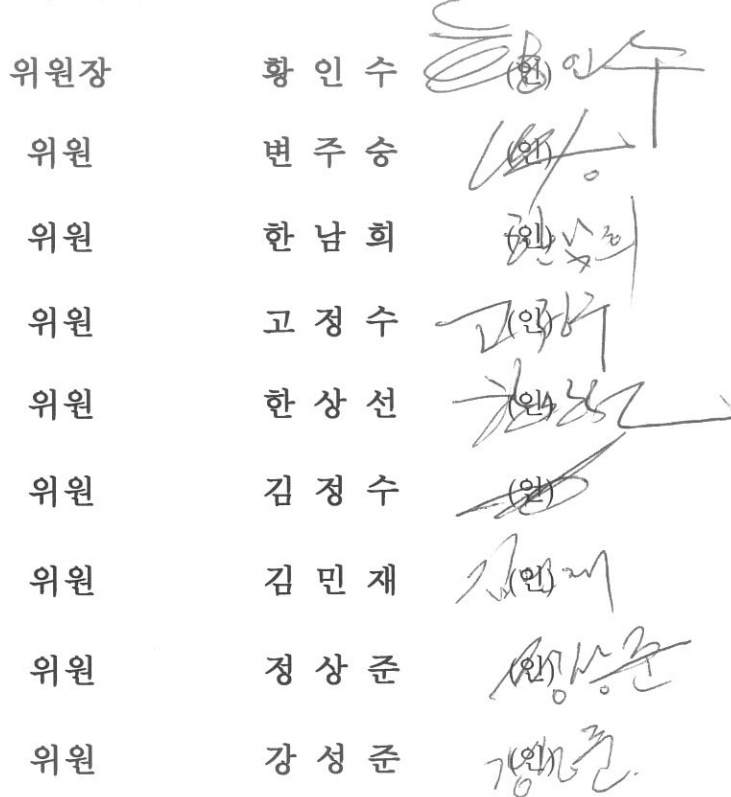 위원장 황 인 수 (인)
위원 변 주 승 (인)
위원 한 남 희 (인)
위원 고 정 수 (인)
위원 한 상 선 (인)
위원 김 정 수 (인)
위원 김 민 재 (인)
위원 정 상 준 (인)
위원 강 성 준 (인)